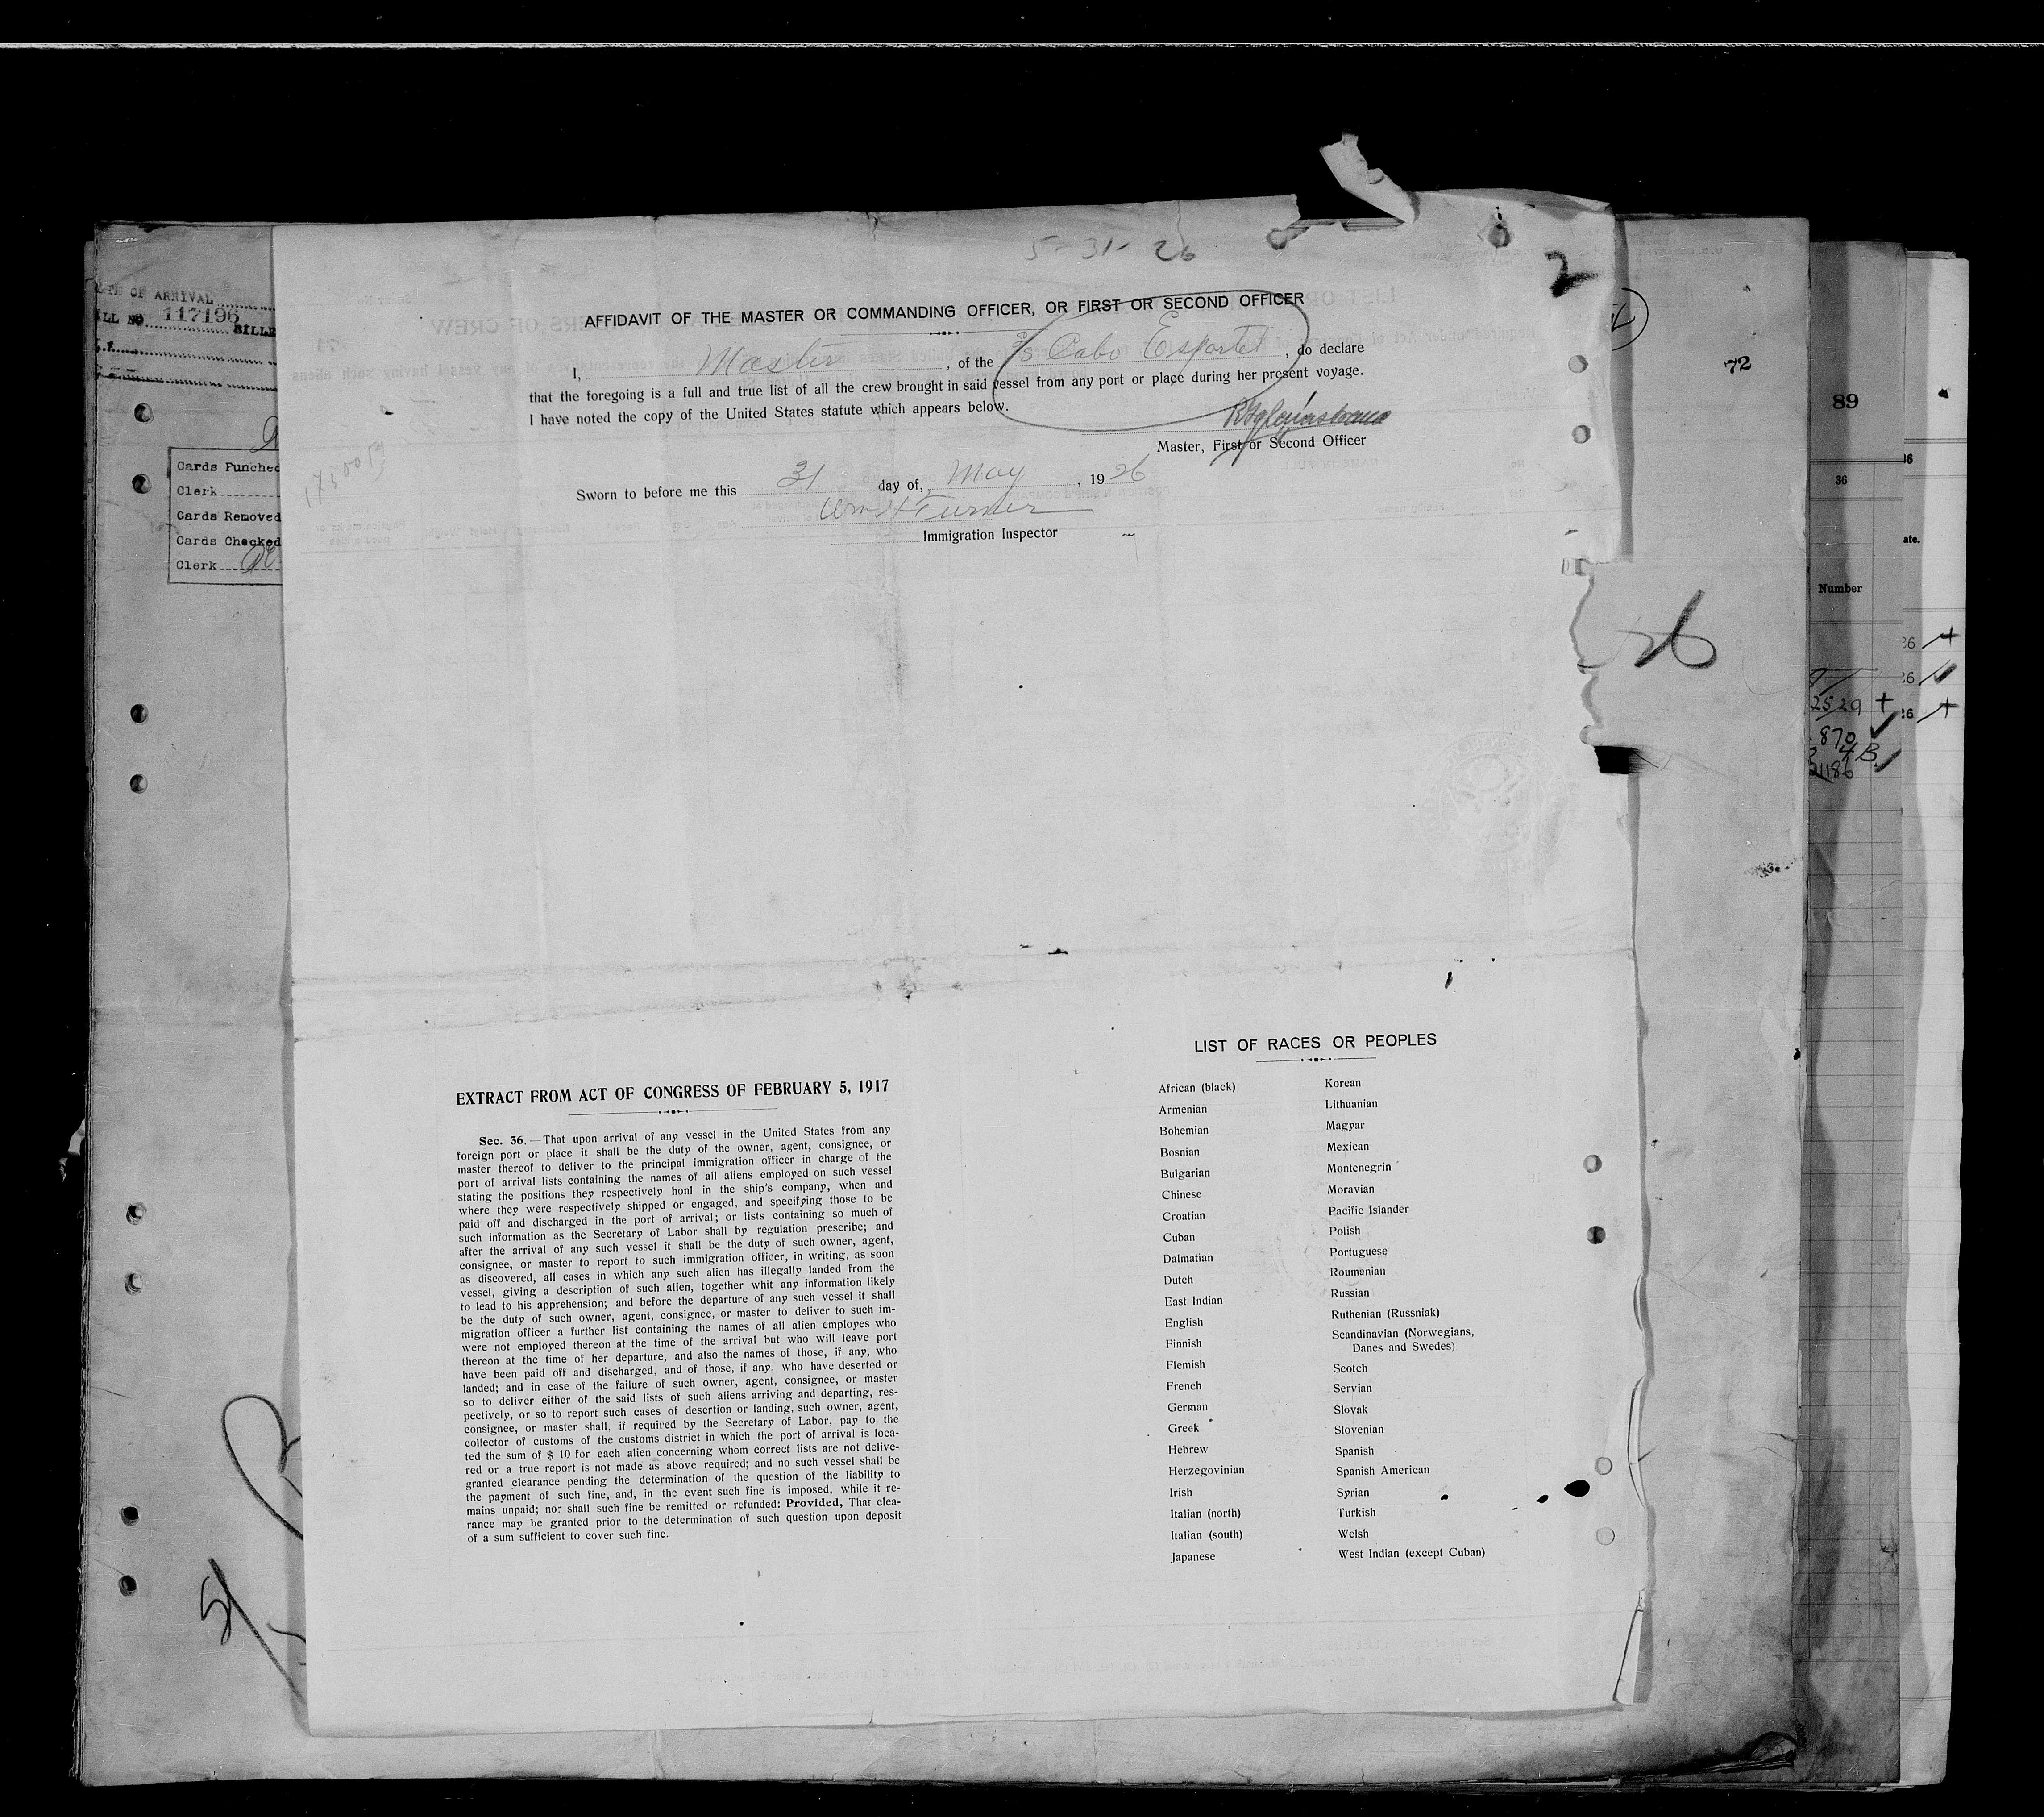 5-31-26
2
AFFIDAVIT OF THE MASTER OR COMMANDING OFFICER, OR FIRST OR SECOND OFFICER
I, Master, of the S/S Cabo Espartel, do declare
that the foregoing is a full and true list of all the crew brought in said vessel from any port or place during her present voyage.
I have noted the copy of the United States statute which appears below.
Master, First or Second Officer
Sworn to before me this 31 day of, May, 1926
Wm H Turner
Immigration Inspector
EXTRACT FROM ACT OF CONGRESS OF FEBRUARY 5, 1917
Sec. 36.—That upon arrival of any vessel in the United States from any
foreign port or place it shall be the duty of the owner, agent, consignee, or
master thereof to deliver to the principal immigration officer in charge of the
port of arrival lists containing the names of all aliens employed on such vessel
stating the positions they respectively honl in the ship's company, when and
where they were respectively shipped or engaged, and specifying those to be
paid off and discharged in the port of arrival; or lists containing so much of
such information as the Secretary of Labor shall by regulation prescribe; and
after the arrival of any such vessel it shall be the duty of such owner, agent,
consignee, or master to report to such immigration officer, in writing, as soon
as discovered, all cases in which any such alien has illegally landed from the
vessel, giving a description of such alien, together whit any information likely
to lead to his apprehension; and before the departure of any such vessel it shall
be the duty of such owner, agent, consignee, or master to deliver to such im-
migration officer a further list containing the names of all alien employes who
were not employed thereon at the time of the arrival but who will leave port
thereon at the time of her departure, and also the names of those, if any, who
have been paid off and discharged, and of those, if any, who have deserted or
landed; and in case of the failure of such owner, agent, consignee, or master
so to deliver either of the said lists of such aliens arriving and departing, res-
pectively, or so to report such cases of desertion or landing, such owner, agent,
consignee, or master shall, if required by the Secretary of Labor, pay to the
collector of customs of the customs district in which the port of arrival is loca-
ted the sum of $ 10 for each alien concerning whom correct lists are not delive-
red or a true report is not made as above required; and no such vessel shall be
granted clearance pending the determination of the question of the liability to
the payment of such fine, and, in the event such fine is imposed, while it re-
mains unpaid; nor shall such fine be remitted or refunded: Provided, That clea-
rance may be granted prior to the determination of such question upon deposit
of a sum sufficient to cover such fine.
LIST OF RACES OR PEOPLES
African (black)
Armenian
Bohemian
Bosnian
Bulgarian
Chinese
Croatian
Cuban
Dalmatian
Dutch
East Indian
English
Finnish
Flemish
French
German
Greek
Hebrew
Herzegovinian
Irish
Italian (north)
Italian (south)
Japanese
Korean
Lithuanian
Magyar
Mexican
Montenegrin
Moravian
Pacific Islander
Polish
Portuguese
Roumanian
Russian
Ruthenian (Russniak)
Scandinavian (Norwegians,
Danes and Swedes)
Scotch
Servian
Slovak
Slovenian
Spanish
Spanish American
Syrian
Turkish
Welsh
West Indian (except Cuban)
OF ARRIVAL
117196
Cards Punched
Clerk
Cards Removed
Cards Checked
Clerk
5
72
26
89
36
Number
2529
870
4B
1186
ate.
26
26